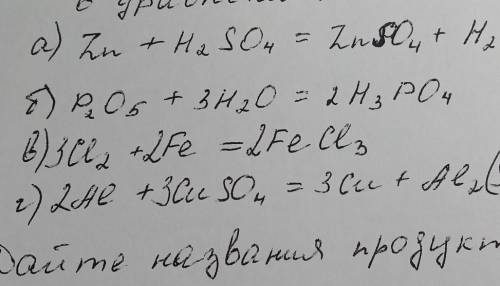 в уравнени
а) Zn + H₂SO₄ = ZnSO₄ + H₂
б) P₂O₅ + 3H₂O = 2H₃PO₄
в) 3Cl₂ + 2Fe = 2FeCl₃
г) 2Al + 3CuSO₄ = 3Cu + Al₂(
Дайте названия продукт